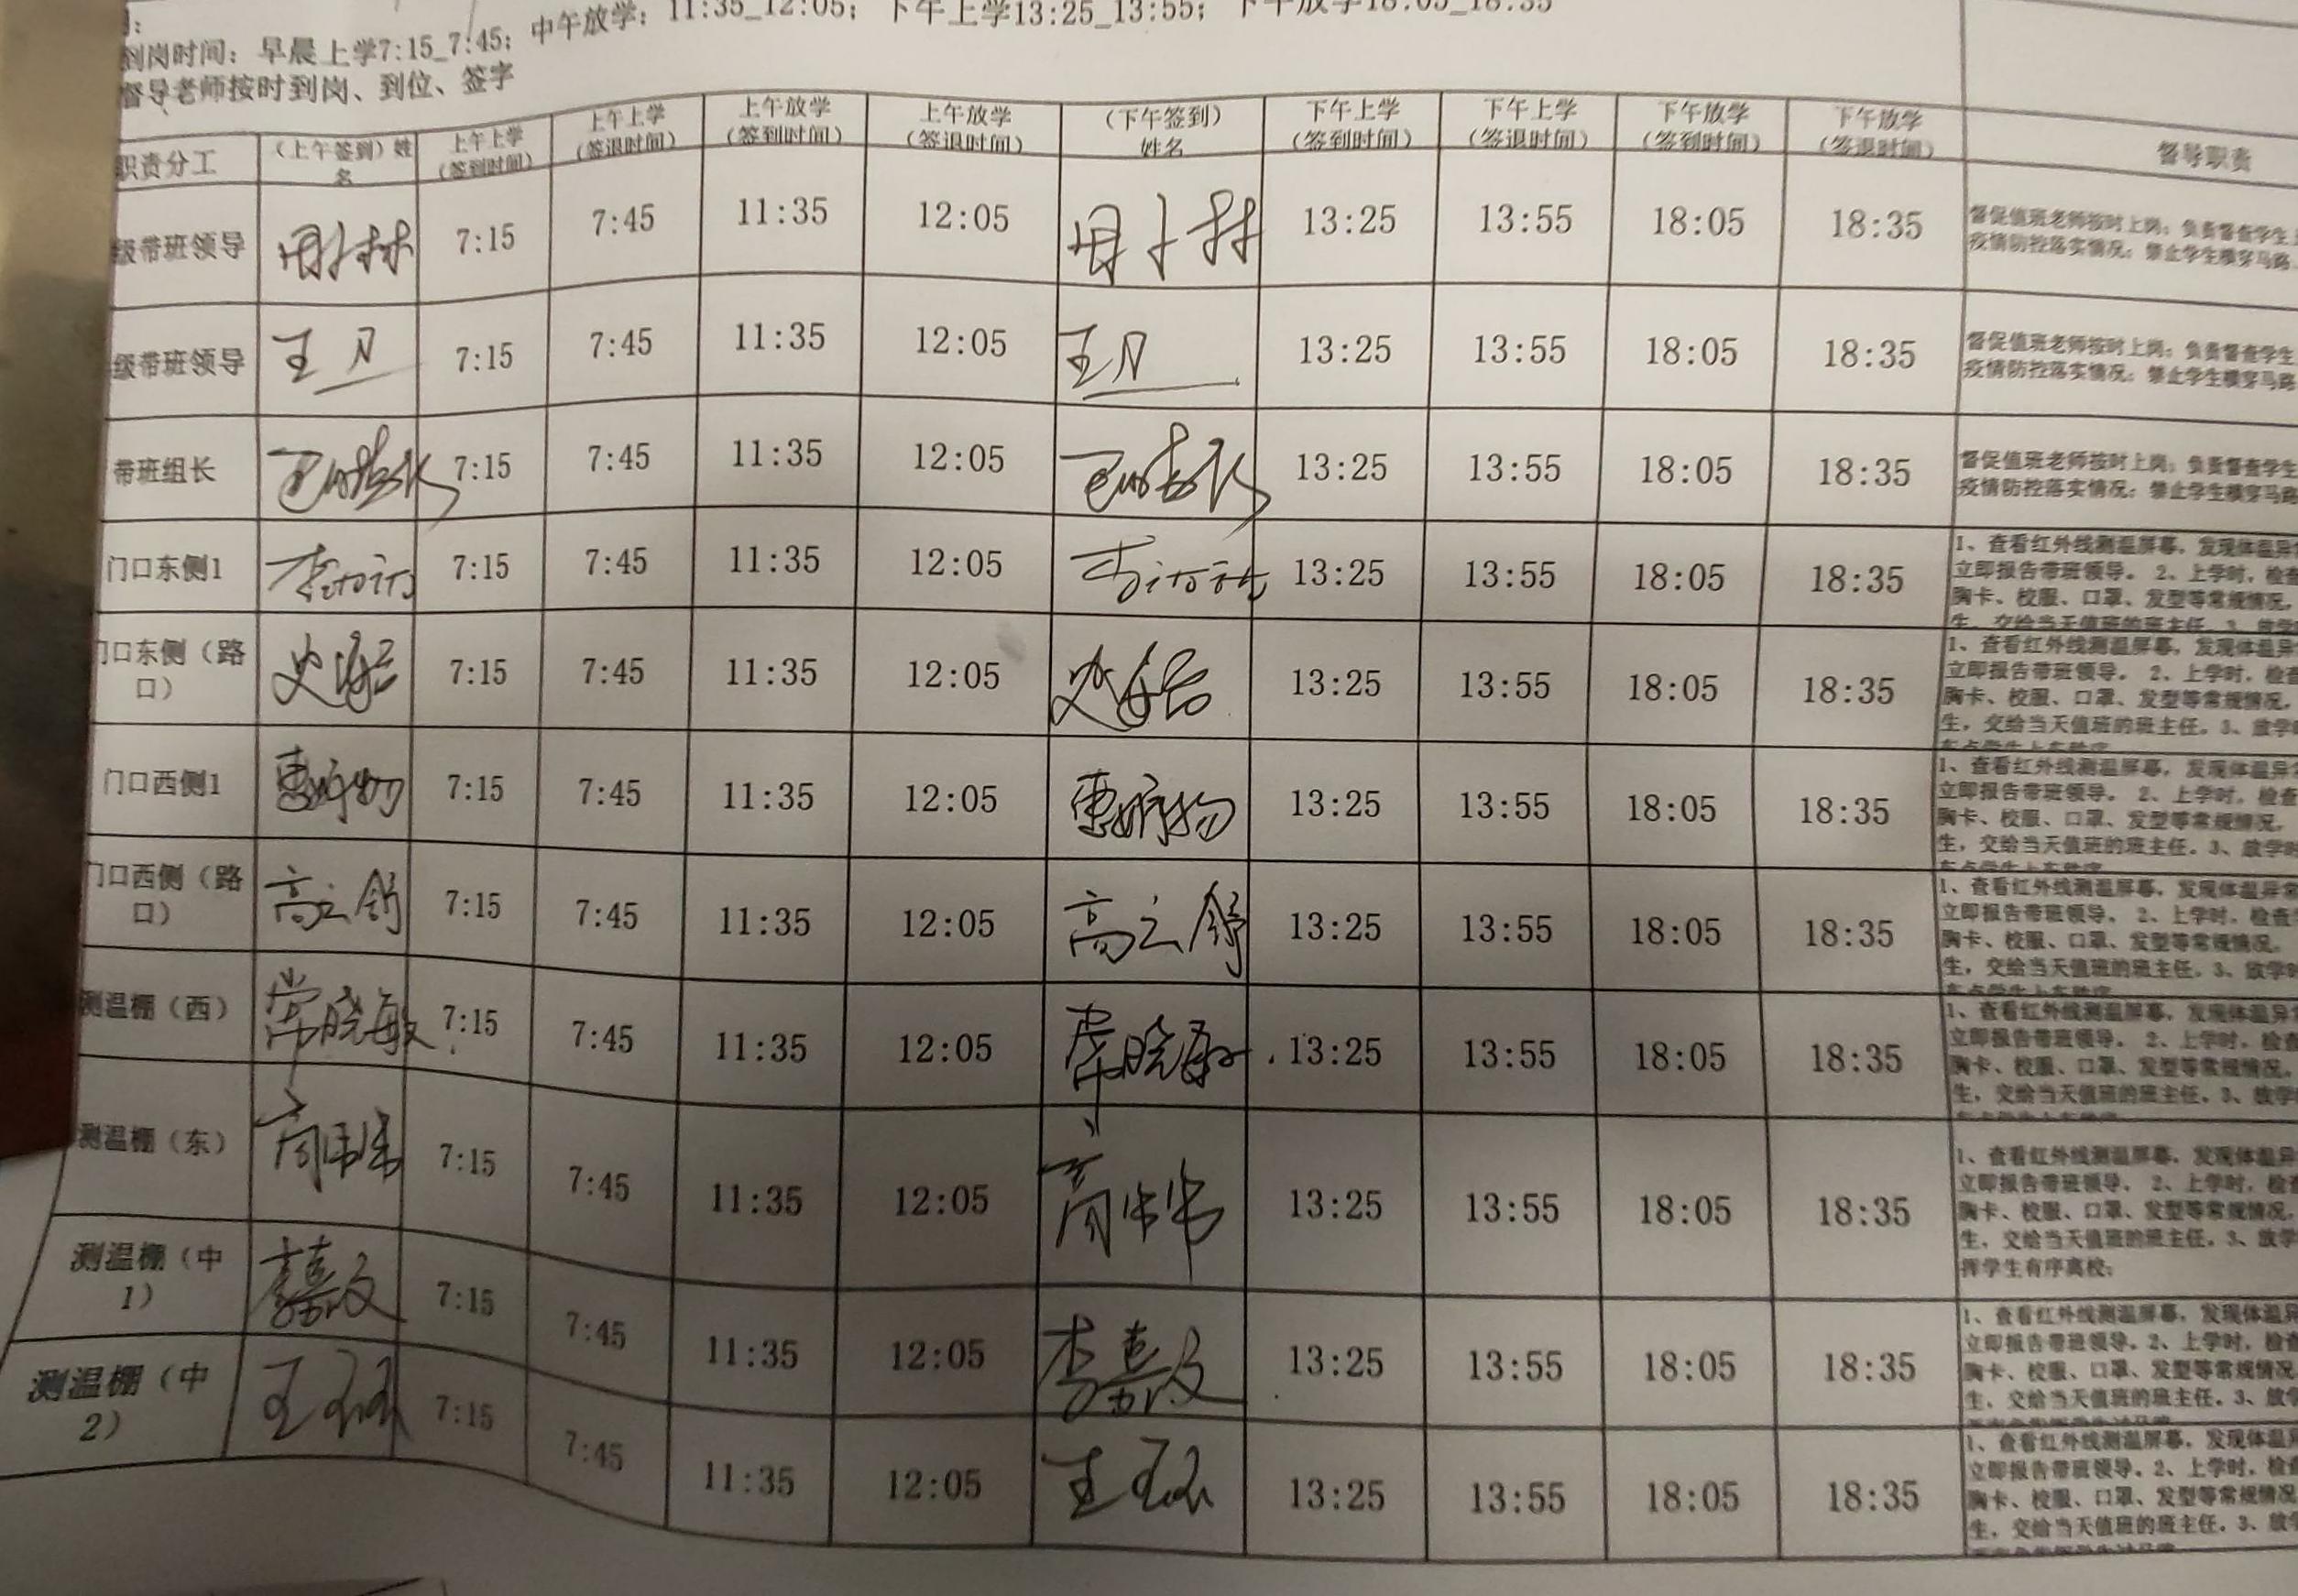 到岗时间：早晨上学7:15_7:45；中午放学：11:35_12:05；下午上学13:25_13:55；下午放学18:05_18:35
督导老师按时到岗、到位、签字
职责分工 （上午签到）姓名 上午上学（签到时间） 上午上学（签退时间） 上午放学（签到时间） 上午放学（签退时间） （下午签到）姓名 下午上学（签到时间） 下午上学（签退时间） 下午放学（签到时间） 下午放学（签退时间） 督导职责
级带班领导 7:15 7:45 11:35 12:05 13:25 13:55 18:05 18:35 督促值班老师按时上岗；负责督查学生
疫情防控落实情况；禁止学生横穿马路
级带班领导 王 7:15 7:45 11:35 12:05 王 13:25 13:55 18:05 18:35 督促值班老师按时上岗；负责督查学生
疫情防控落实情况；禁止学生横穿马路
带班组长 7:15 7:45 11:35 12:05 13:25 13:55 18:05 18:35 督促值班老师按时上岗；负责督查学生
疫情防控落实情况；禁止学生横穿马路
门口东侧1 李 7:15 7:45 11:35 12:05 李 13:25 13:55 18:05 18:35 1、查看红外线测温屏幕，发现体温异
立即报告带班领导。 2、上学时，检查
胸卡、校服、口罩、发型等常规情况，
生，交给当天值班的班主任。3、放学
门口东侧（路口） 史 7:15 7:45 11:35 12:05 史 13:25 13:55 18:05 18:35 1、查看红外线测温屏幕，发现体温异
立即报告带班领导。 2、上学时，检查
胸卡、校服、口罩、发型等常规情况，
生，交给当天值班的班主任。3、放学时
门口西侧1 7:15 7:45 11:35 12:05 13:25 13:55 18:05 18:35 1、查看红外线测温屏幕，发现体温异
立即报告带班领导。 2、上学时，检查
胸卡、校服、口罩、发型等常规情况，
生，交给当天值班的班主任。3、放学时
门口西侧（路口） 高立舒 7:15 7:45 11:35 12:05 高立舒 13:25 13:55 18:05 18:35 1、查看红外线测温屏幕，发现体温异常
立即报告带班领导。 2、上学时，检查
胸卡、校服、口罩、发型等常规情况，
生，交给当天值班的班主任。3、放学时
测温棚（西） 常晓敏 7:15 7:45 11:35 12:05 常晓敏 13:25 13:55 18:05 18:35 1、查看红外线测温屏幕，发现体温异
立即报告带班领导。 2、上学时，检查
胸卡、校服、口罩、发型等常规情况，
生，交给当天值班的班主任。3、放学
测温棚（东） 7:15 7:45 11:35 12:05 13:25 13:55 18:05 18:35 1、查看红外线测温屏幕，发现体温异
立即报告带班领导。 2、上学时，检查
胸卡、校服、口罩、发型等常规情况，
生，交给当天值班的班主任。3、放学
挥学生有序离校；
测温棚（中1） 李嘉文 7:15 7:45 11:35 12:05 李嘉文 13:25 13:55 18:05 18:35 1、查看红外线测温屏幕，发现体温异
立即报告带班领导。2、上学时，检查
胸卡、校服、口罩、发型等常规情况
生，交给当天值班的班主任。3、放学
测温棚（中2） 王 7:15 7:45 11:35 12:05 王 13:25 13:55 18:05 18:35 1、查看红外线测温屏幕，发现体温异
立即报告带班领导。2、上学时，检查
胸卡、校服、口罩、发型等常规情况
生，交给当天值班的班主任。3、放学